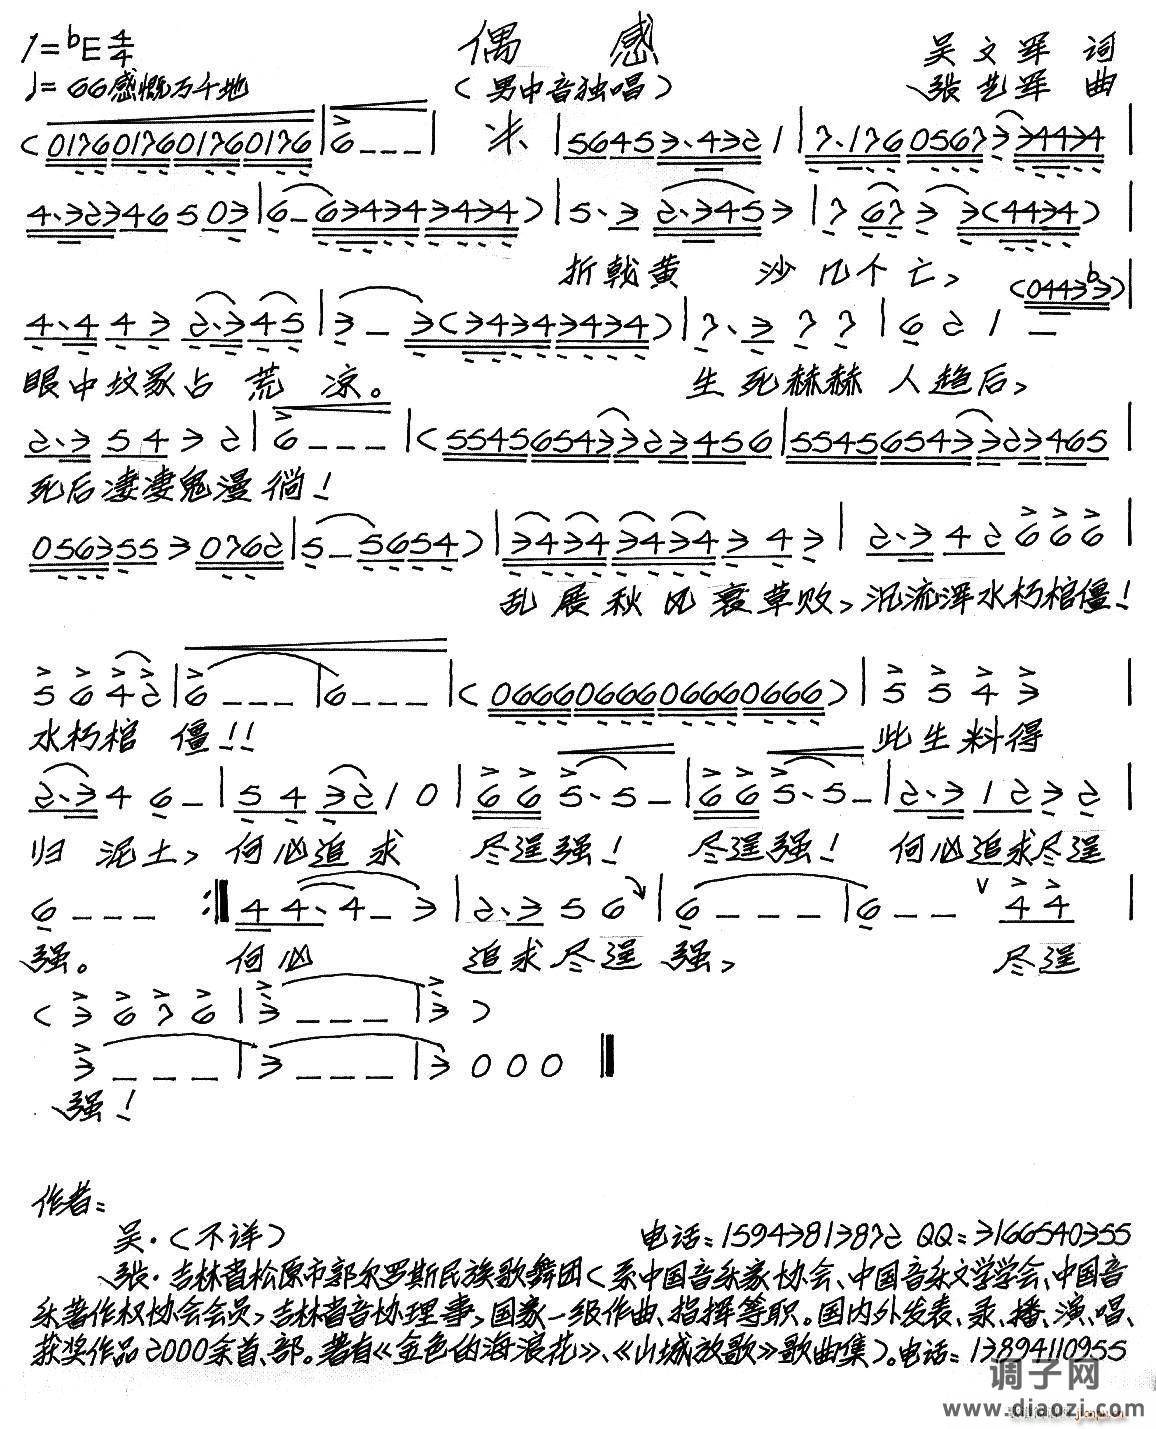 1=♭E 4/4 偶 感 吴文军 词
♩=66 感慨万千地 (男中音独唱) 张艺军 曲
(0176 0176 0176 0176 | 6 - - - | 米、 | 5645 3·432 1 | 7·176 0567 3 33434 |
4·323 46 5 03 | 6 - 6343434 3434) | 5·3 2·345 3 | 7 67 3 3(4434) |
折戟黄 沙几个亡、
4·4 4 3 2·3 45 | 3 - 3(3434 3434) | 7·3 7 7 | 6 2 1 - (0443♭3) |
眼中坟冢占 荒 凉。 生死赫赫 人趋后、
2·3 54 3 2 | 6 - - - | (5545 6543 323 456 | 5545 6543 323 465 |
死后凄凄鬼漫徜!
0563 55 3 0762 | 5 - 5654) | 3434 3434 3 4 3 | 2·3 42 6 6 6 |
乱 展 秋 风 衰草败、沉流浑水朽棺僵!
5 6 4 2 | 6 - - - | 6 - - - | (0666 0666 0666 0666) | 5 5 4 3 |
水朽棺 僵!! 此生料得
2·3 4 6 - | 54 32 1 0 | 66 5·5 - | 66 5·5 - | 2·3 12 3 2 |
归 泥土、何必追求 尽逞强! 尽逞强! 何必追求尽逞
6 - - - :‖ 44·4 - 3 | 2·3 5 6 | 6 - - - | 6 - - 44 |
强。 何必 追求尽逞 强、 尽逞
(3 6 7 6 | 3 - - - | 3)
3 - - - | 3 - - - | 3 0 0 0 ‖
强!
作者:
吴·(不详) 电话:15943813872 QQ:3166540355
张·吉林省松原市郭尔罗斯民族歌舞团(系中国音乐家协会、中国音乐文学学会、中国音
乐著作权协会会员,吉林省音协理事,国家一级作曲、指挥等职。国内外发表、录、播、演、唱、
获奖作品2000余首、部。著有《金色的海浪花》、《山城放歌》歌曲集)。电话:13894110955
调子网
www.diaozi.com